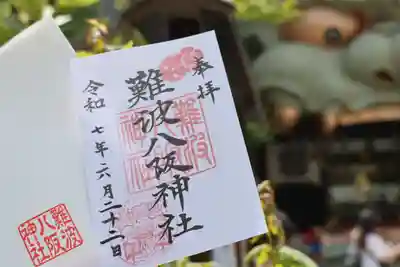 奉拝
難波八阪神社
令和七年六月二十二日
難波
八阪
神社